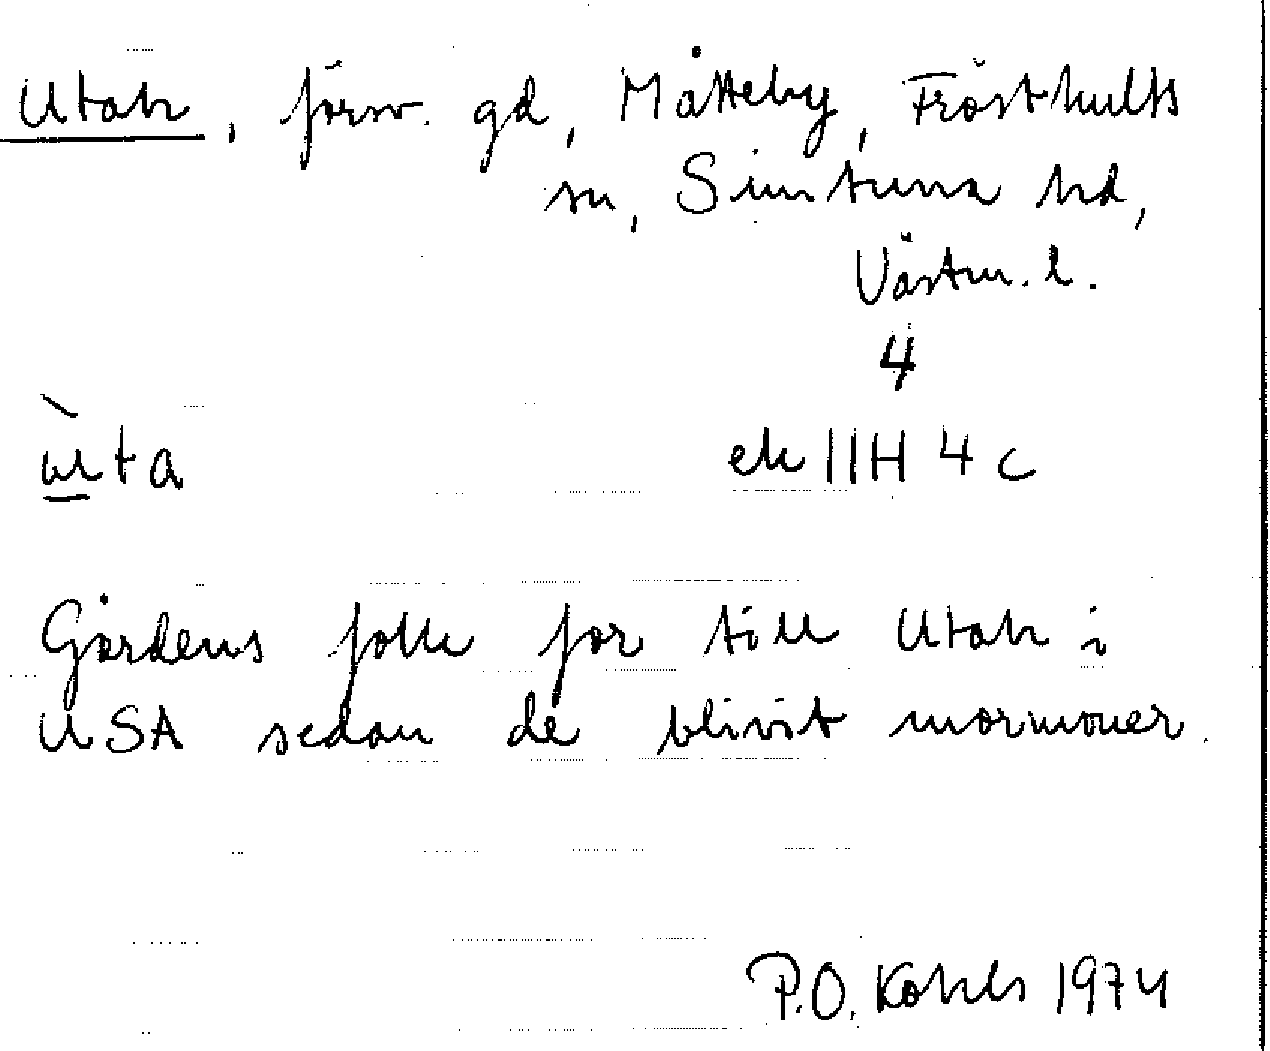 Utah, försv. gd, Måtteby, Frösthults
sn, Simtuna hd,
Västm. l.
4
ùta ek 11H 4 c
Gårdens folk for till Utah i
USA sedan de blivit mormoner.
P.O. Kohls 1974